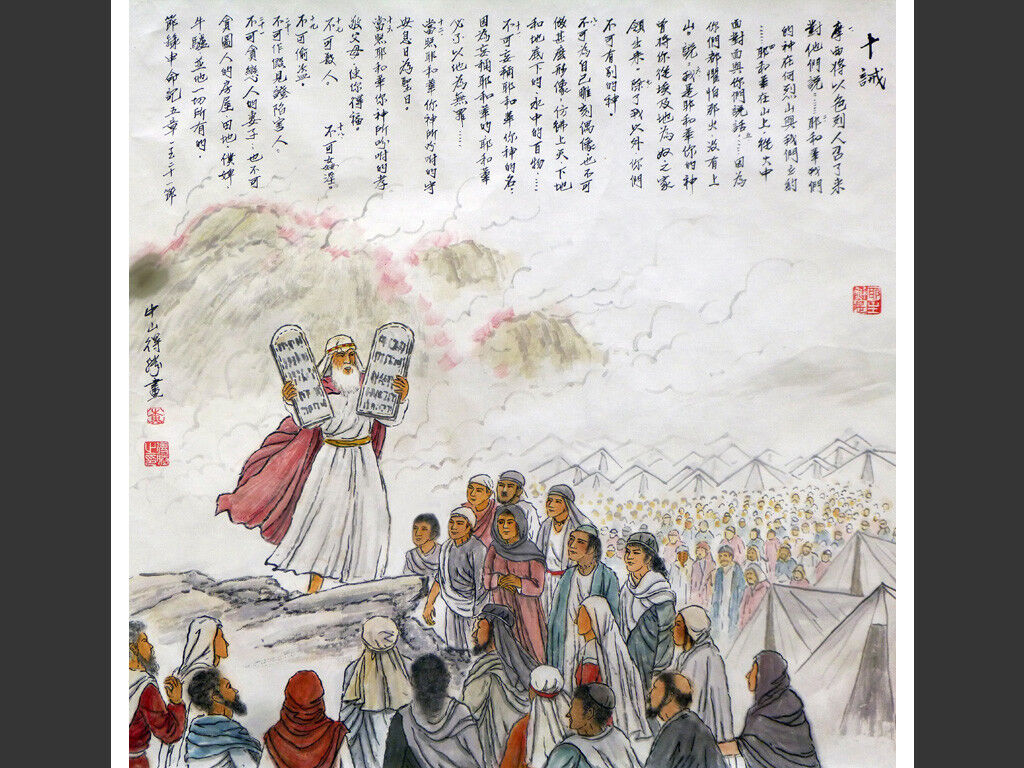 十誡
摩西將以色列人召了來
對他們說、耶和華我們
的神在何烈山與我們立約
……耶和華在山上、從火中
面對面與你們說話……因為
你們都懼怕那火、沒有上
山。說、我是耶和華你的神
曾將你從埃及地為奴之家
領出來。除了我以外、你們
不可有別的神。
不可為自己雕刻偶像也不可
做甚麼形像、彷彿上天、下地
和地底下的、水中的百物……
不可妄稱耶和華你神的名、
因為妄稱耶和華的耶和華
必不以他為無罪……
當照耶和華你神所吩咐的守
安息日為聖日。
當照耶和華你神所吩咐的孝
敬父母、使你得福。
不可殺人。 不可姦淫。
不可偷盜。
不可作假見證陷害人。
不可貪戀人的妻子、也不可
貪圖人的房屋、田地、僕婢
牛驢並他一切所有的。
節錄申命記五章
中山得勝畫